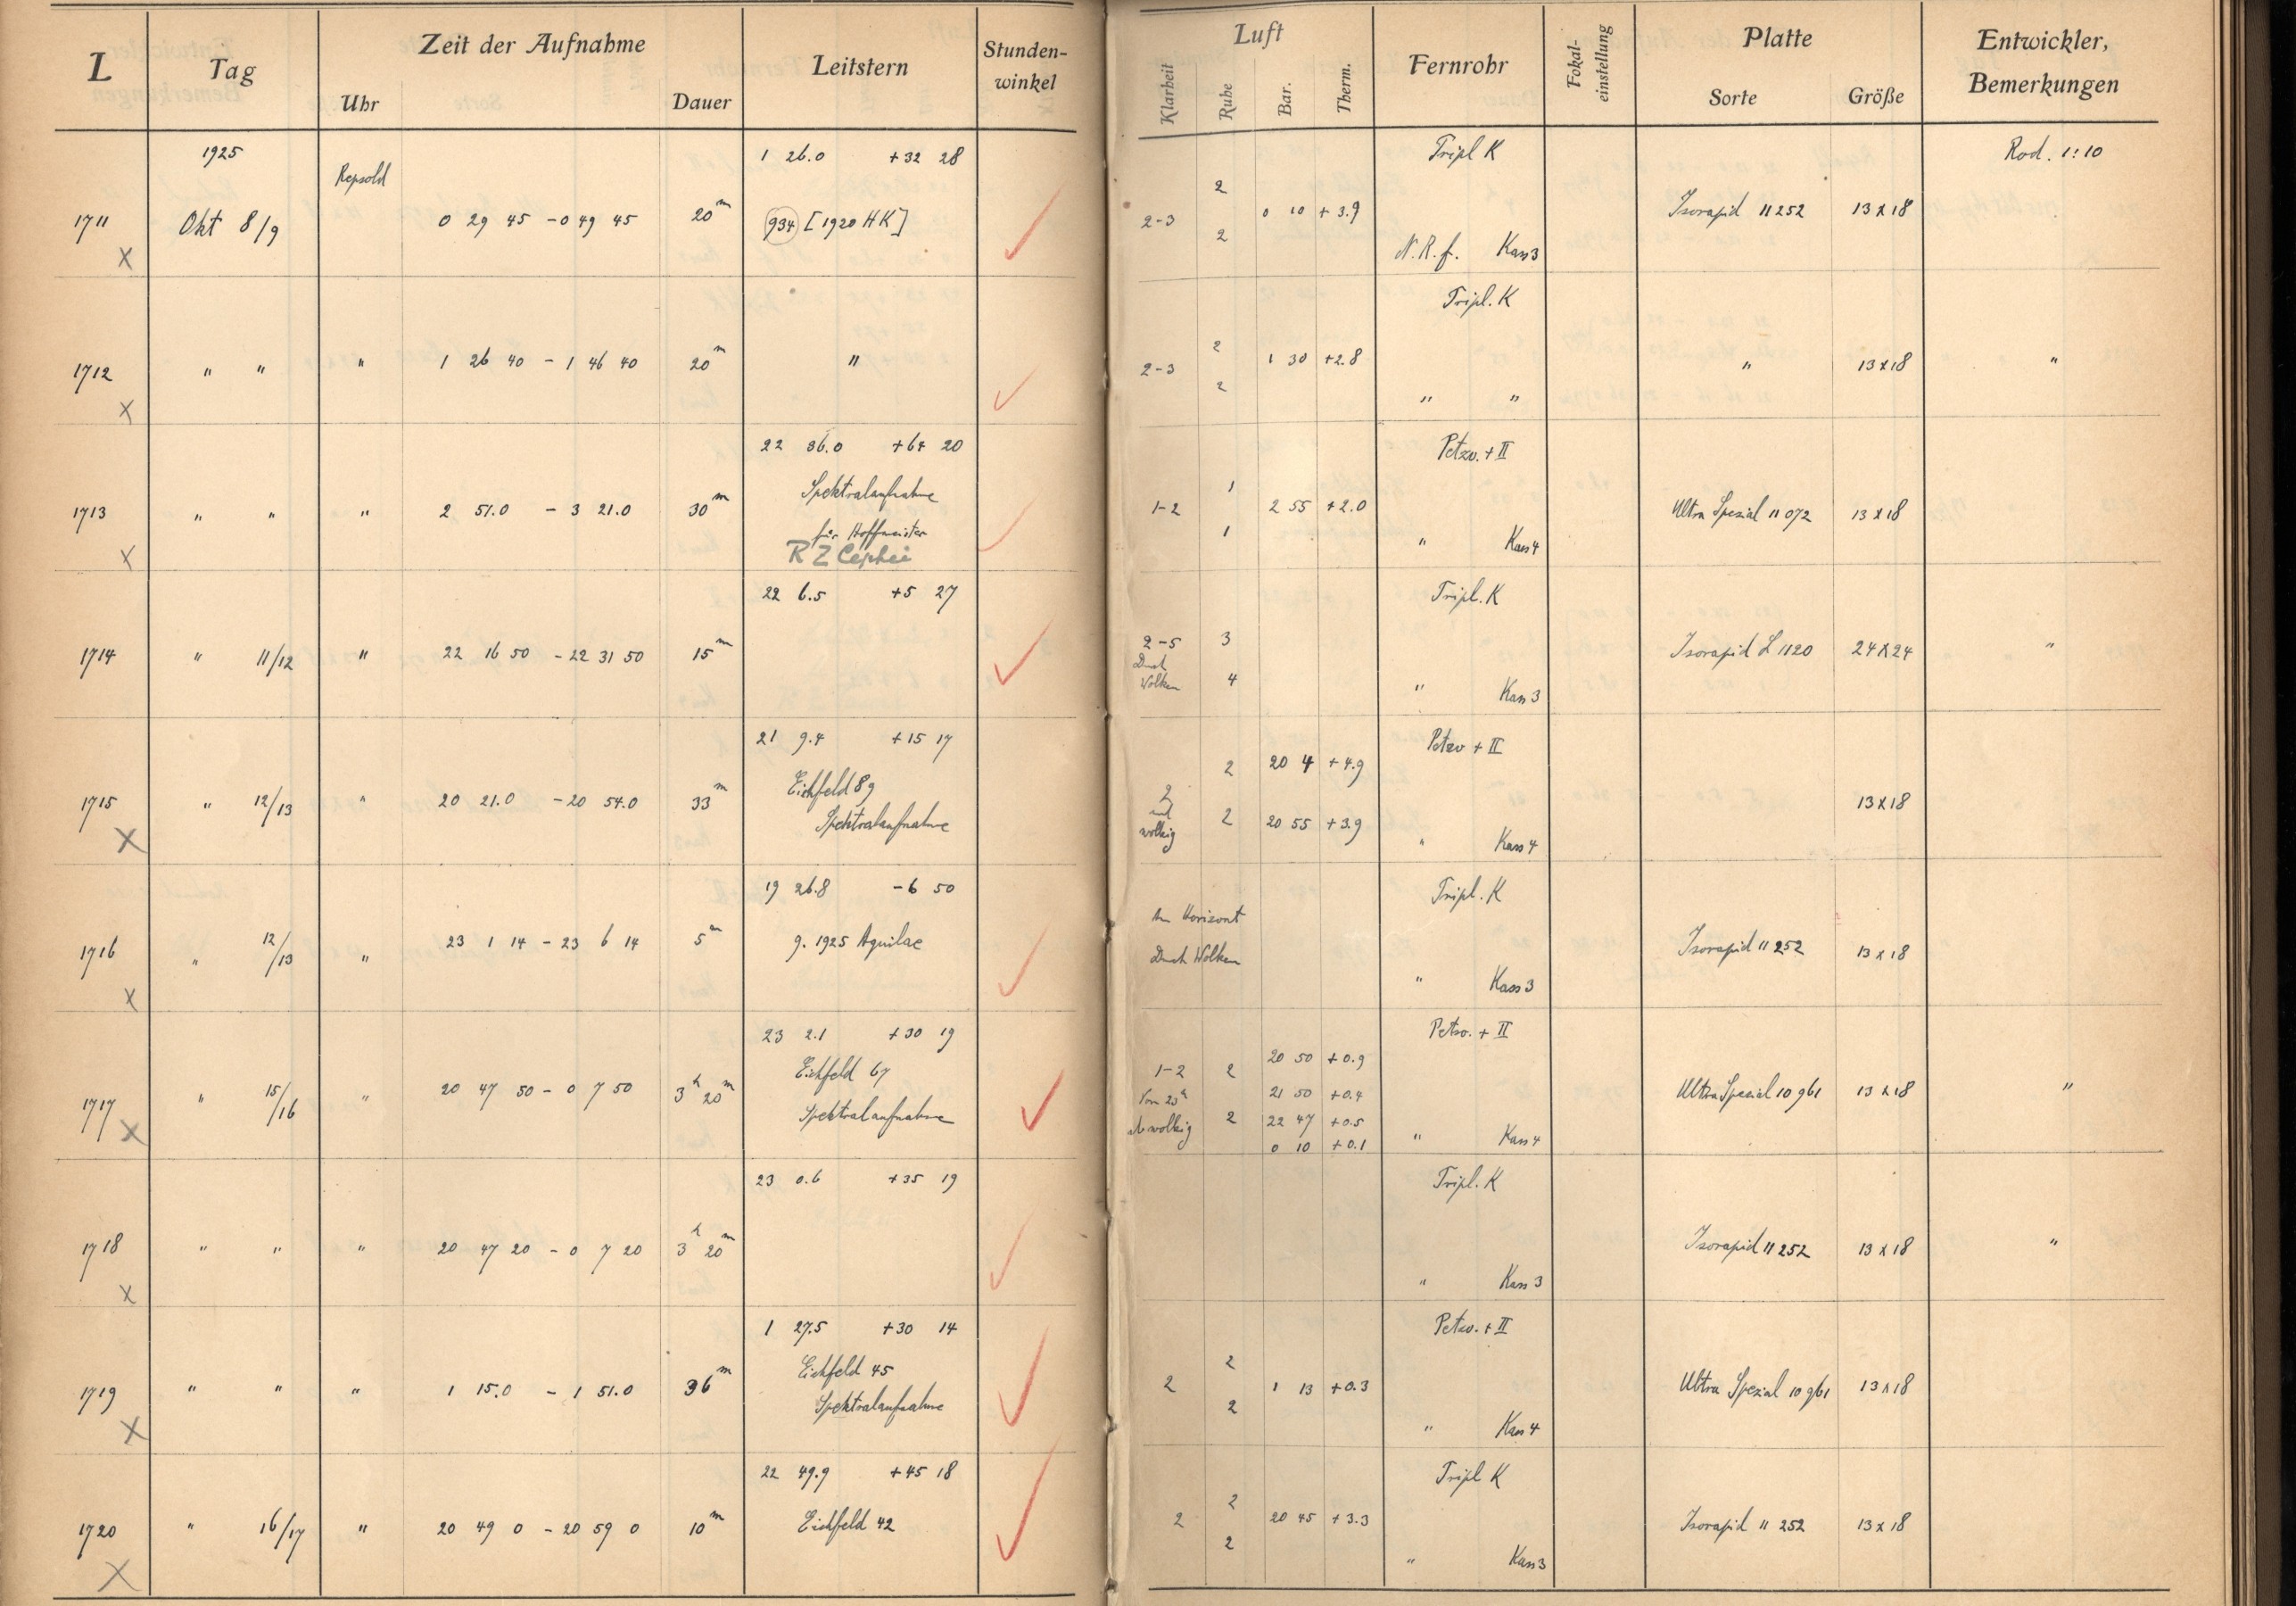 L Tag Zeit der Aufnahme Leitstern Stunden-winkel Luft Fernrohr Fokal-einstellung Platte Entwickler, Bemerkungen
Uhr Dauer Klarheit Ruhe Bar. Therm. Sorte Größe
1925 1 26.0 +32 28 Tripl K Rod. 1:10
Repsold 2
1711 Okt 8/9 0 29 45 - 0 49 45 20m 934 [1920 HK] 2-3 0 10 +3.9 Isorapid 11252 13x18
X 2 N.R.f. Kass3
Tripl. K
2
1712 " " " 1 26 40 - 1 46 40 20m " 2-3 1 30 +2.8 " 13x18 "
X 2 " "
22 36.0 +64 20 Petzv. + II
Spektralaufnahme 1
1713 " " " 2 51.0 - 3 21.0 30m 1-2 2 55 +2.0 Ultra Spezial 11072 13x18
für Hoffmeister 1 " Kass4
X RZ Cephei
22 6.5 +5 27 Tripl. K
2-5 3
1714 " 11/12 " 22 16 50 - 22 31 50 15m Durch Isorapid L 1120 24x24 "
Wolken 4 " Kass3
21 9.4 +15 17 Petzv + II
2 20 4 +4.9
Eichfeld 89 2
1715 " 12/13 " 20 21.0 - 20 54.0 33m und 13x18
Spektralaufnahme wolkig 2 20 55 +3.9
X " Kass4
19 26.8 -6 50 Tripl. K
Am Horizont
1716 " 12/13 " 23 1 14 - 23 6 14 5m 9. 1925 Aquilae Durch Wolken Isorapid 11252 13x18
X " Kass3
23 2.1 +30 19 Petzv. + II
Eichfeld 67 1-2 2 20 50 +0.9
1717 " 15/16 " 20 47 50 - 0 7 50 3h 20m Von 23h 21 50 +0.4 Ultra Spezial 10961 13x18 "
Spektralaufnahme ab wolkig 2 22 47 +0.5
X 0 10 +0.1 " Kass4
23 0.6 +35 19 Tripl. K
1718 " " " 20 47 20 - 0 7 20 3h 20m Isorapid 11252 13x18 "
X " Kass3
1 27.5 +30 14 Petzv. + II
Eichfeld 45 2
1719 " " " 1 15.0 - 1 51.0 36m 2 1 13 +0.3 Ultra Spezial 10961 13x18
Spektralaufnahme 2
X " Kass4
22 49.9 +45 18 Tripl K
2
1720 " 16/17 " 20 49 0 - 20 59 0 10m Eichfeld 42 2 20 45 +3.3 Isorapid 11252 13x18
2
X " Kass3